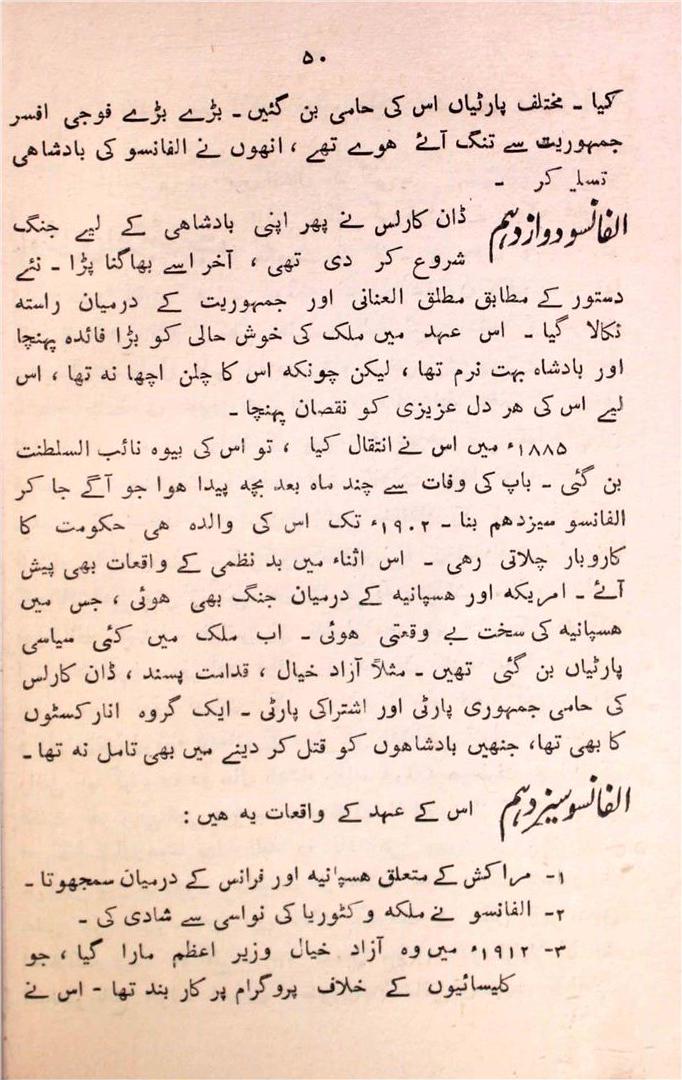 ۵۰
کیا ـ مختلف پارٹیاں اس کی حامی بن گئیں ـ بڑے بڑے فوجی افسر
جمہوریت سے تنگ آئے ہوے تھے ، انھوں نے الفانسو کی بادشاھی
تسلیم کر ـ
الفانسو دوازدہم
ڈان کارلس نے پھر اپنی بادشاھی کے لیے جنگ
شروع کر دی تھی ، آخر اسے بھاگنا پڑا ـ نئے
دستور کے مطابق مطلق العنانی اور جمہوریت کے درمیان راستہ
نکالا گیا ـ اس عہد میں ملک کی خوش حالی کو بڑا فائدہ پہنچا
اور بادشاہ بہت نرم تھا ، لیکن چونکہ اس کا چلن اچھا نہ تھا ، اس
لیے اس کی ھر دل عزیزی کو نقصان پہنچا ـ
۱۸۸۵ء میں اس نے انتقال کیا ، تو اس کی بیوہ نائب السلطنت
بن گئی ـ باپ کی وفات سے چند ماہ بعد بچہ پیدا ھوا جو آگے جا کر
الفانسو سیزدھم بنا ـ ۱۹۰۲ء تک اس کی والدہ ھی حکومت کا
کاروبار چلاتی رھی ـ اس اثناء میں بد نظمی کے واقعات بھی پیش
آئے ـ امریکہ اور ھسپانیہ کے درمیان جنگ بھی ھوئی ، جس میں
ھسپانیہ کی سخت بے وقعتی ھوئی ـ اب ملک میں کئی سیاسی
پارٹیاں بن گئی تھیں ـ مثلاً آزاد خیال ، قدامت پسند ، ڈان کارلس
کی حامی جمہوری پارٹی اور اشتراکی پارٹی ـ ایک گروہ انارکسٹوں
کا بھی تھا، جنھیں بادشاھوں کو قتل کر دینے میں بھی تامل نہ تھا ـ
الفانسو سیزدہم
اس کے عہد کے واقعات یہ ھیں :
۱ـ مراکش کے متعلق ھسپانیہ اور فرانس کے درمیان سمجھوتا ـ
۲ـ الفانسو نے ملکہ وکٹوریا کی نواسی سے شادی کی ـ
۳ـ ۱۹۱۲ء میں وہ آزاد خیال وزیر اعظم مارا گیا ، جو
کلیسائیوں کے خلاف پروگرام پر کار بند تھا ـ اس نے